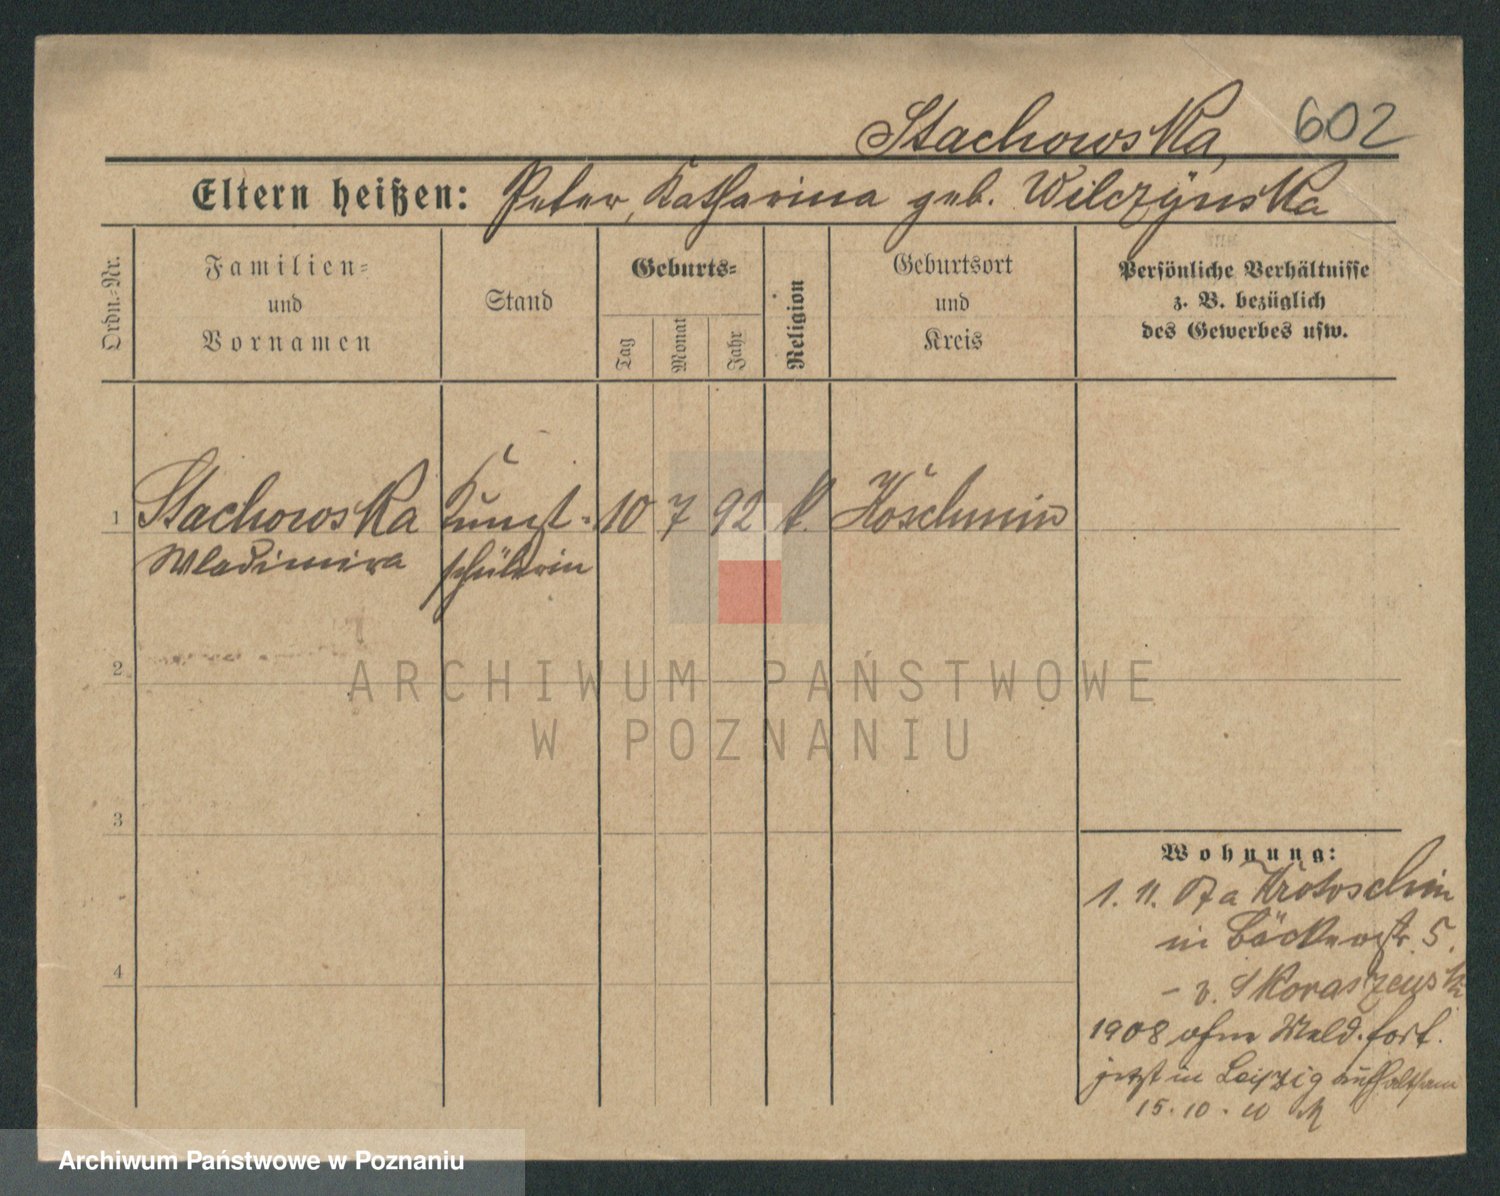 Stachowska, 602
Eltern heißen: Peter, Katharina geb. Wilczÿnska
Ordn.-Nr.
Familien-
und
Vornamen
Stand
Geburts-
Tag
Monat
Jahr
Religion
Geburtsort
und
Kreis
Persönliche Verhältnisse
z. B. bezüglich
des Gewerbes usw.
1 Stachowska Kunst- 10 7 92 k. Koschmin
Wladimira schülerin
2
3
4
Wohnung:
1. 11. 07 a Krotoschin
in Bäckerstr. 5.
- v. Skoraszewski
1908 ohne Meld. fort.
jetzt in Leipzig aufhaltsam
15.10.10
ARCHIWUM PAŃSTWOWE
W POZNANIU
Archiwum Państwowe w Poznaniu